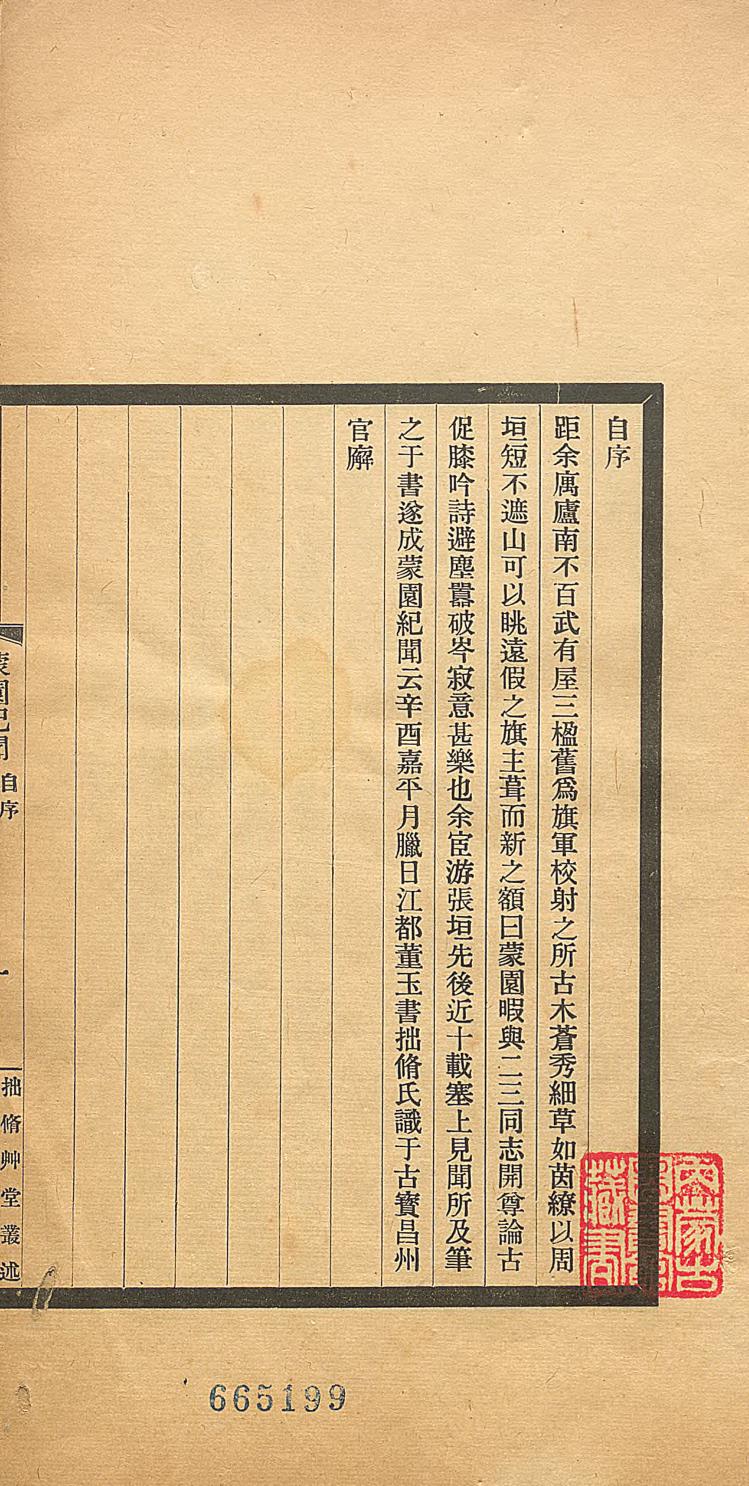 自序
距余寓廬南不百武有屋三楹舊爲旗軍校射之所古木蒼秀細草如茵繚以周
垣短不遮山可以眺遠假之旗主葺而新之額曰蒙園暇與二三同志開尊論古
促膝吟詩避塵囂破岑寂意甚樂也余宦游張垣先後近十載塞上見聞所及筆
之于書遂成蒙園紀聞云辛酉嘉平月臘日江都董玉書拙脩氏識于古寶昌州
官廨
蒙園紀聞 自序
一
拙脩艸堂叢述
內蒙古
圖書館
藏書
665199